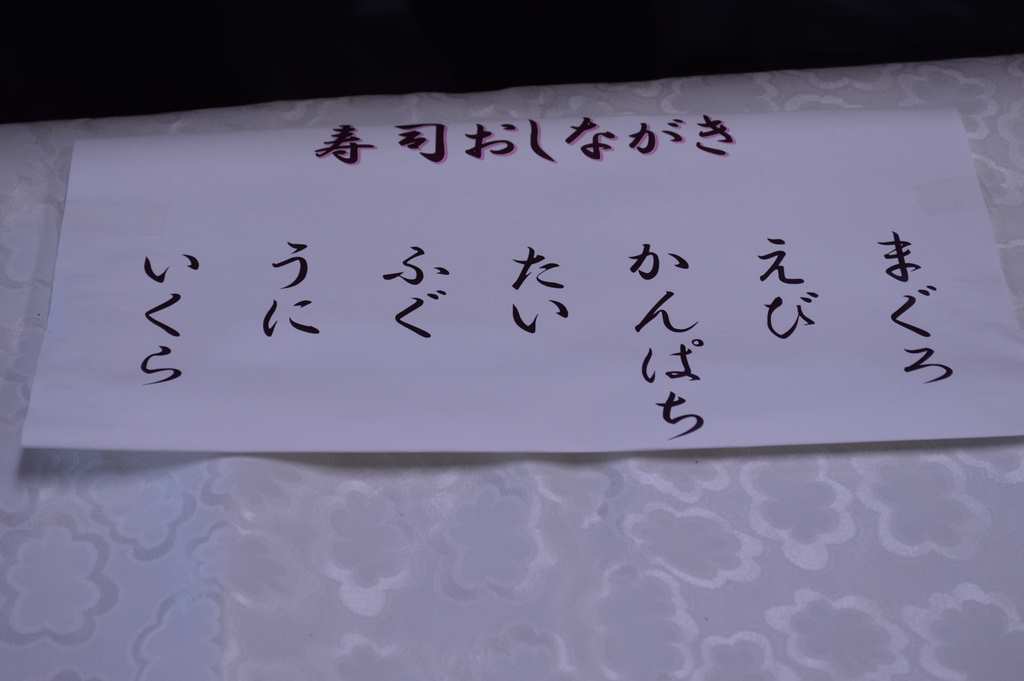 寿司おしながき
まぐろ
えび
かんぱち
たい
ふぐ
うに
いくら